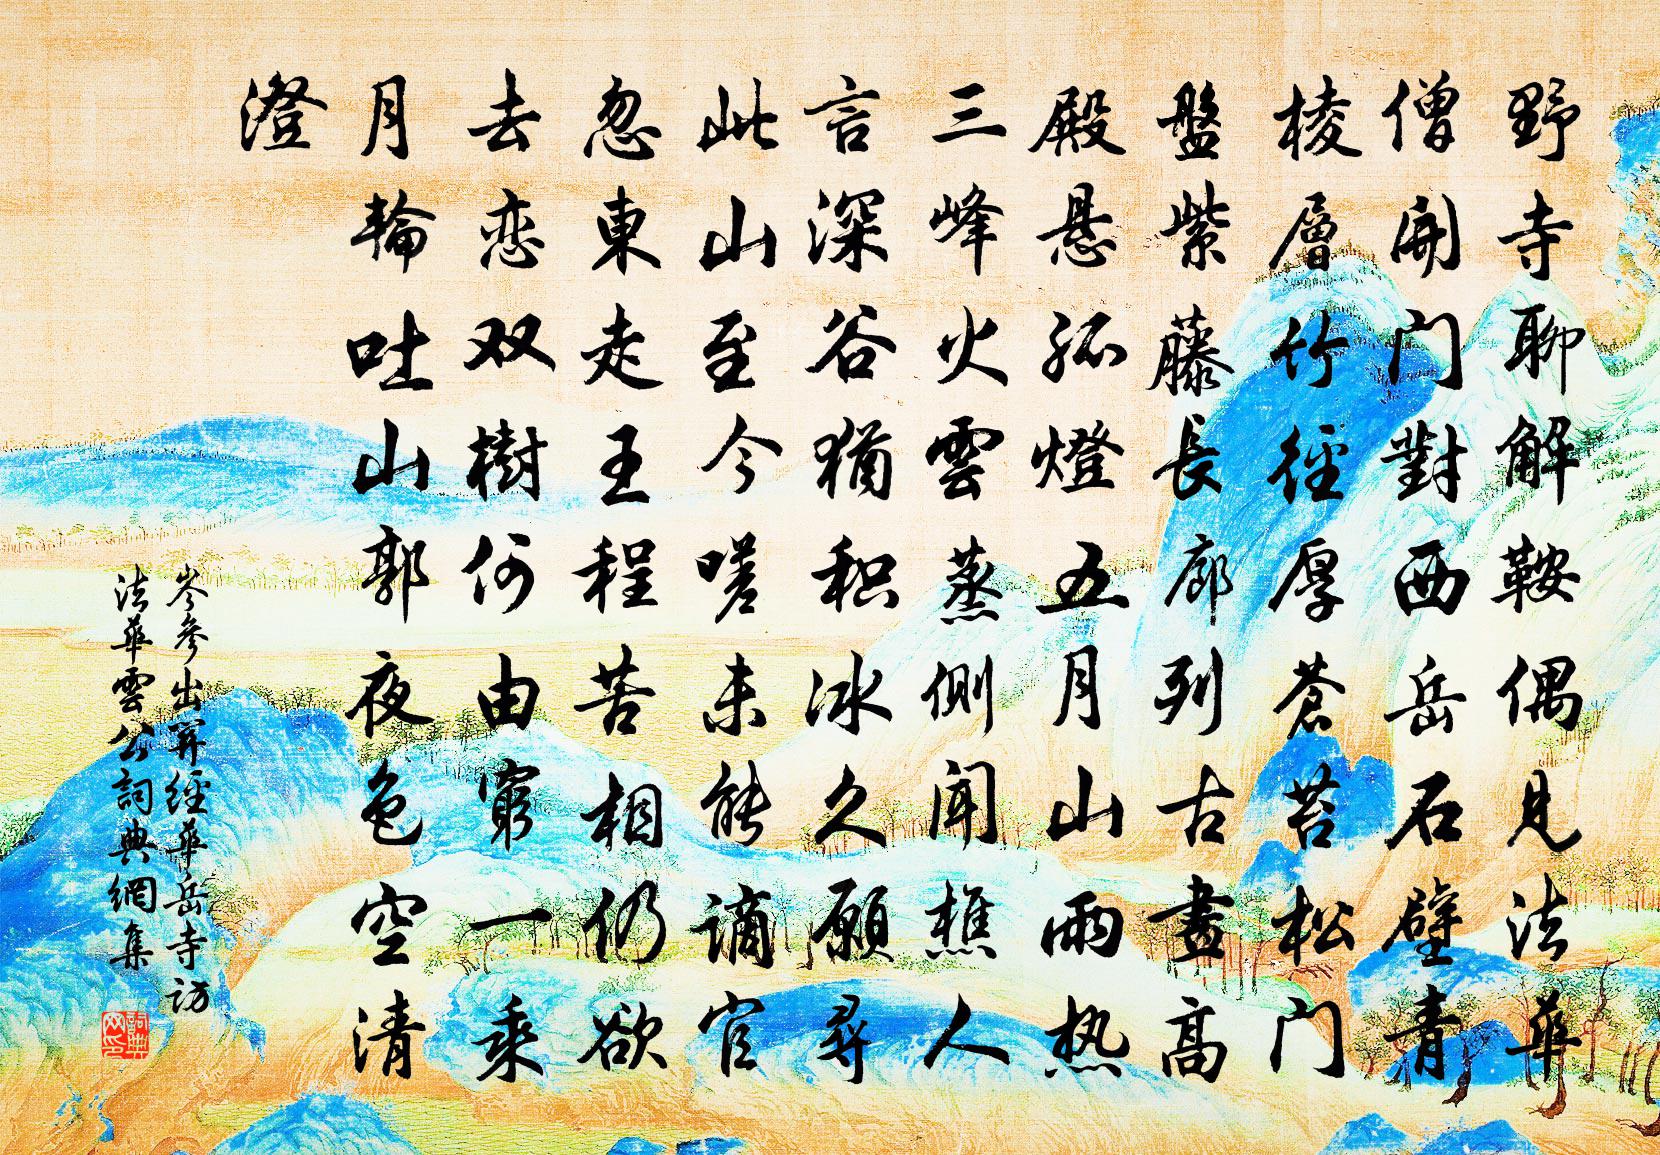 野寺聊解鞍偶見法華
僧開门對西岳石壁青
棱層竹徑厚蒼苔松门
盤紫藤長廊列古畫高
殿悬孤燈五月山雨热
三峰火雲蒸側聞樵人
言深谷猶积冰久願尋
此山至今嗟未能谪官
忽東走王程苦相仍欲
去恋双樹何由窮一乘
月輪吐山郭夜色空清
澄
岑參出關經華岳寺訪
法華雲公詞典網集
詞典网印